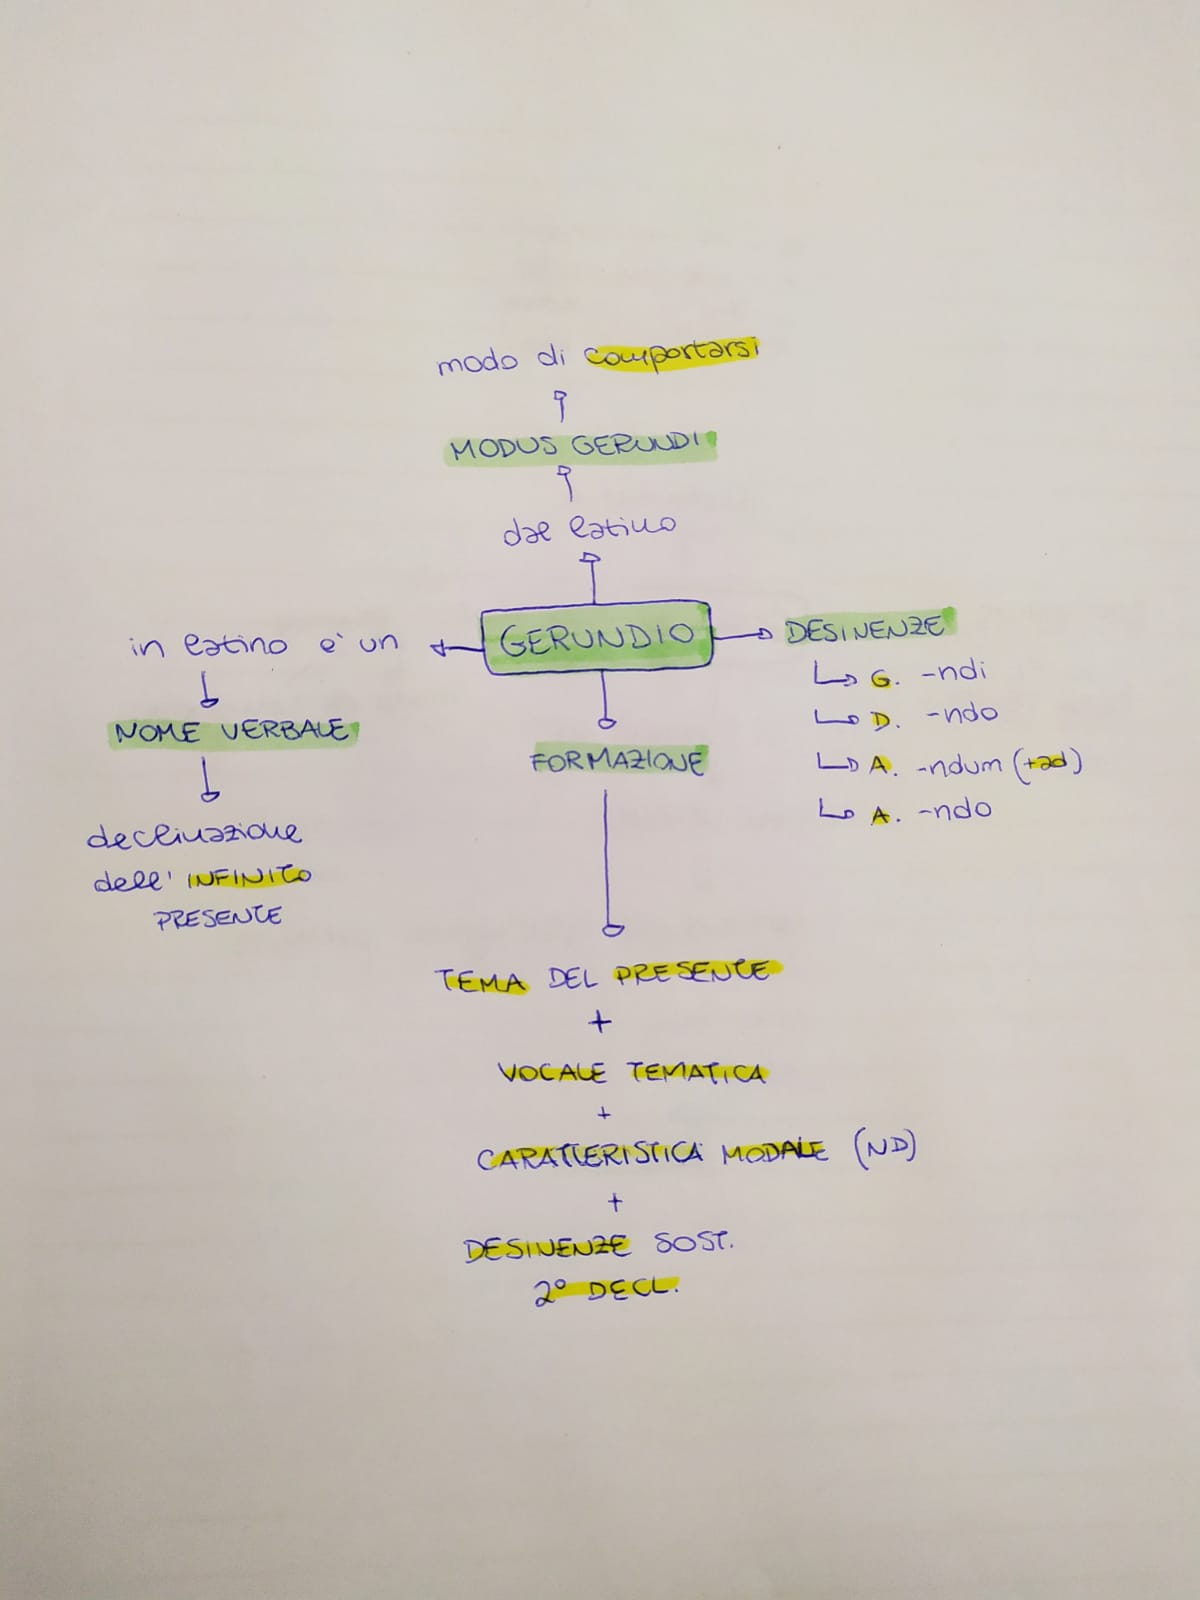 modo di comportarsi
MODUS GERUNDI
dal latino
GERUNDIO
in latino è un
NOME VERBALE
declinazione
dell' INFINITO
PRESENTE
DESINENZE
G. -ndi
D. -ndo
A. -ndum (+ad)
A. -ndo
FORMAZIONE
TEMA DEL PRESENTE
+
VOCALE TEMATICA
+
CARATTERISTICA MODALE (ND)
+
DESINENZE SOST.
2° DECL.